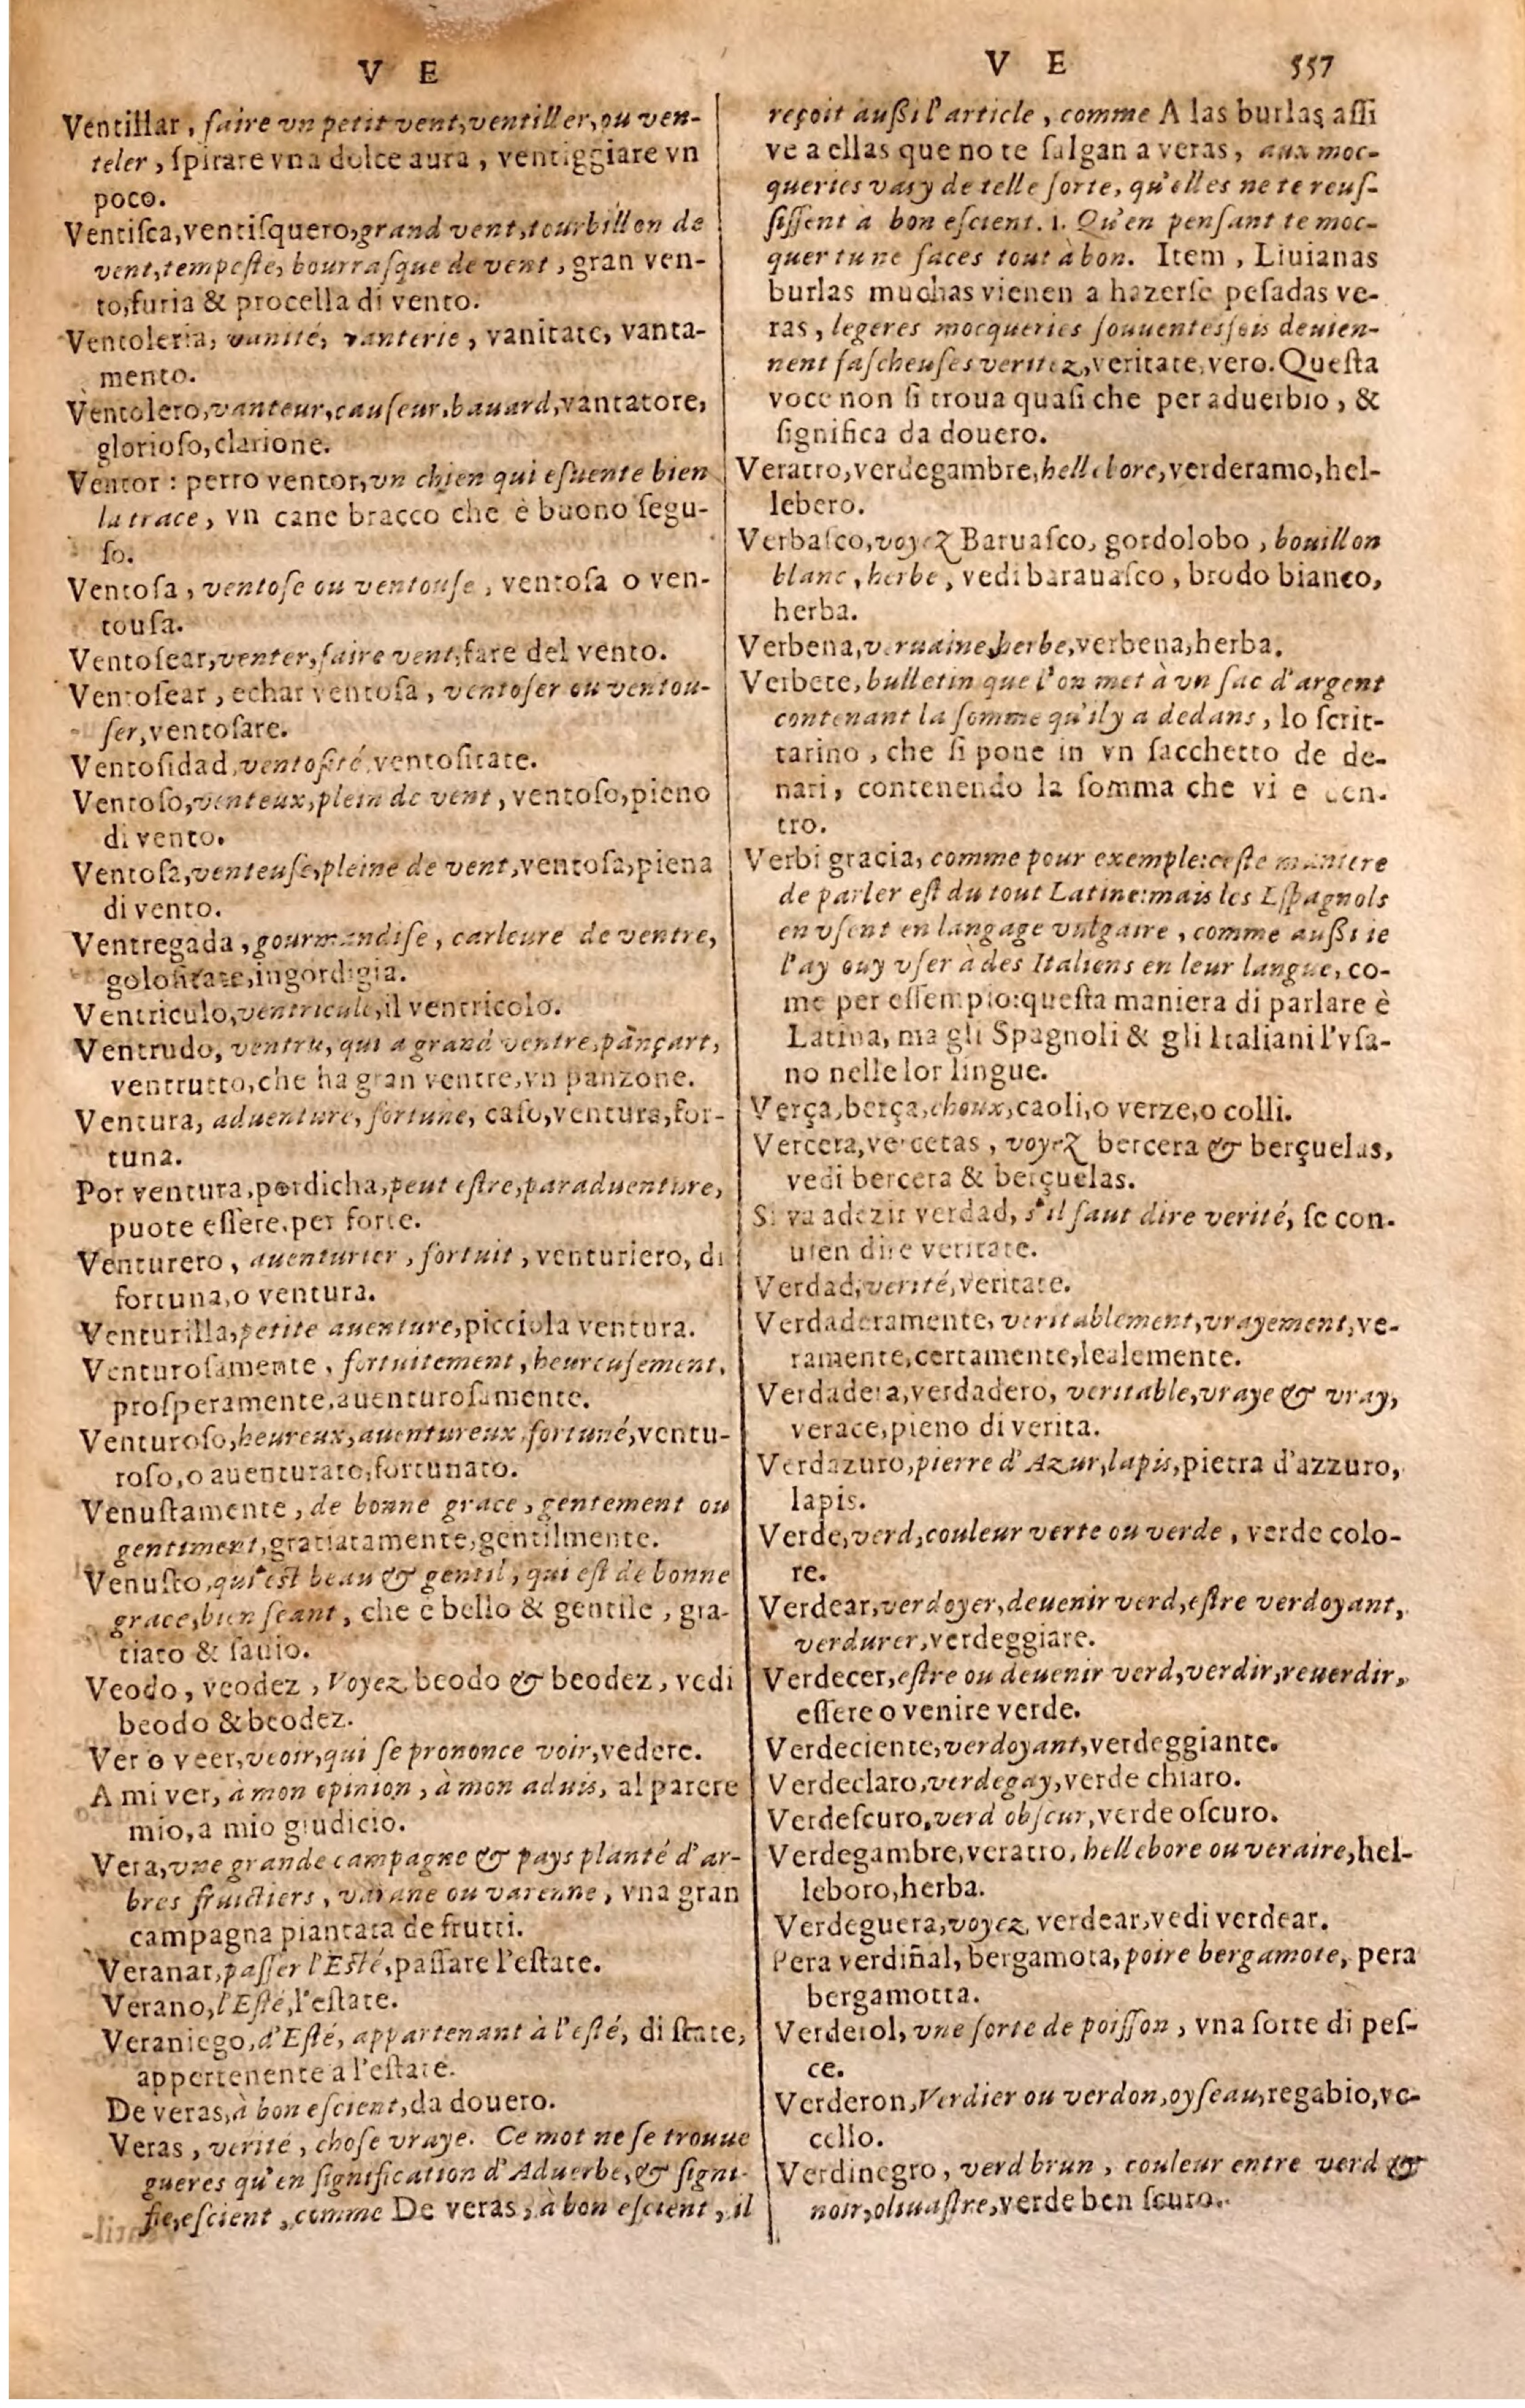 V E
Ventillar, faire vn petit vent, ventiller, ou ven-
teler, ſpirare vna dolce aura, ventiggiare vn
poco.
Ventiſca, ventiſquero, grand vent, tourbillon de
vent, tempeſte, bourraſque de vent, gran ven-
to, furia & procella di vento.
Ventoleria, vanité, vanterie, vanitate, vanta-
mento.
Ventolero, vanteur, cauſeur, bauard, vantatore,
glorioſo, clarione.
Ventor : perro ventor, vn chien qui eſuente bien
la trace, vn cane bracco che è buono ſegu-
ſo.
Ventoſa, ventoſe ou ventouſe, ventoſa o ven-
touſa.
Ventoſear, venter, faire vent, fare del vento.
Ventoſear, echar ventoſa, ventoſer ou ventou-
ſer, ventoſare.
Ventoſidad, ventoſité, ventoſitate.
Ventoſo, venteux, plein de vent, ventoſo, pieno
di vento.
Ventoſa, venteuſe, pleine de vent, ventoſa, piena
di vento.
Ventregada, gourmandiſe, carleure de ventre,
goloſitate, ingordigia.
Ventriculo, ventricule, il ventricolo.
Ventrudo, ventru, qui a grand ventre, pançart,
ventrutto, che ha gran ventre, vn panzone.
Ventura, aduenture, fortune, caſo, ventura, for-
tuna.
Por ventura, pordicha, peut eſtre, paraduenture,
puote eſſere, per ſorte.
Venturero, auenturier, fortuit, venturiero, di
fortuna, o ventura.
Venturilla, petite auenture, picciola ventura.
Venturoſamente, fortuitement, heureuſement,
proſperamente, auenturoſamente.
Venturoſo, heureux, auentureux, fortuné, ventu-
roſo, o auenturato, fortunato.
Venuſtamente, de bonne grace, gentement ou
gentiment, gratiatamente, gentilmente.
Venuſto, qui est beau & gentil, qui eſt de bonne
grace, bien ſeant, che è bello & gentile, gra-
tiato & ſauio.
Veodo, veodez, Voyez beodo & beodez, vedi
beodo & beodez.
Ver o veer, veoir, qui ſe prononce voir, vedere.
A mi ver, à mon opinion, à mon aduis, al parere
mio, a mio giudicio.
Vera, vne grande campagne & pays planté d'ar-
bres fruictiers, varane ou varenne, vna gran
campagna piantata de frutti.
Veranar, paſſer l'Esté, paſſare l'eſtate.
Verano, l'Eſté, l'eſtate.
Veraniego, d'Eſté, appartenant à l'eſté, di ſtate,
appertenente a l'eſtate.
De veras, à bon eſcient, da douero.
Veras, verité, choſe vraye. Ce mot ne ſe trouue
gueres qu'en ſignification d'Aduerbe, & ſigni-
fie, eſcient, comme De veras, à bon eſcient, il
V E 557
reçoit außi l'article, comme A las burlas aſſi
ve a ellas que no te ſalgan a veras, aux moc-
queries vas y de telle ſorte, qu'elles ne te reuſ-
ſiſſent à bon eſcient. 1. Qu'en penſant te moc-
quer tu ne faces tout à bon. Item, Liuianas
burlas muchas vienen a hazerſe peſadas ve-
ras, legeres mocqueries ſouuentesfois deuien-
nent faſcheuſes veritez, veritate, vero. Queſta
voce non ſi troua quaſi che per aduerbio, &
ſignifica da douero.
Veratro, verdegambre, hellebore, verderamo, hel-
lebero.
Verbaſco, voyez Baruaſco, gordolobo, bouillon
blanc, herbe, vedi barauaſco, brodo bianco,
herba.
Verbena, veruaine, herbe, verbena, herba.
Verbete, bulletin que l'on met à vn ſac d'argent
contenant la ſomme qu'il y a dedans, lo ſcrit-
tarino, che ſi pone in vn ſacchetto de de-
nari, contenendo la ſomma che vi e den-
tro.
Verbi gracia, comme pour exemple: ceſte maniere
de parler eſt du tout Latine: mais les Eſpagnols
en vſent en langage vulgaire, comme außi ie
l'ay ouy vſer à des Italiens en leur langue, co-
me per eſſempio: queſta maniera di parlare è
Latina, ma gli Spagnoli & gli Italiani l'vſa-
no nelle lor lingue.
Verça, berça, choux, caoli, o verze, o colli.
Vercera, vercetas, voyez bercera & berçuelas,
vedi bercera & berçuelas.
Si va a dezir verdad, s'il faut dire verité, ſe con-
uien dire veritate.
Verdad, verité, veritate.
Verdaderamente, veritablement, vrayement, ve-
ramente, certamente, lealemente.
Verdadera, verdadero, veritable, vraye & vray,
verace, pieno di verita.
Verdazuro, pierre d'Azur, lapis, pietra d'azzuro,
lapis.
Verde, verd, couleur verte ou verde, verde colo-
re.
Verdear, verdoyer, deuenir verd, eſtre verdoyant,
verdurer, verdeggiare.
Verdecer, eſtre ou deuenir verd, verdir, reuerdir,
eſſere o venire verde.
Verdeciente, verdoyant, verdeggiante.
Verdeclaro, verdegay, verde chiaro.
Verdeſcuro, verd obſcur, verde oſcuro.
Verdegambre, veratro, hellebore ou veraire, hel-
leboro, herba.
Verdeguera, voyez verdear, vedi verdear.
Pera verdiñal, bergamota, poire bergamote, pera
bergamotta.
Verderol, vne ſorte de poiſſon, vna ſorte di peſ-
ce.
Verderon, Verdier ou verdon, oyſeau, regabio, vc-
cello.
Verdinegro, verd brun, couleur entre verd &
noir, oliuaſtre, verde ben ſcuro.